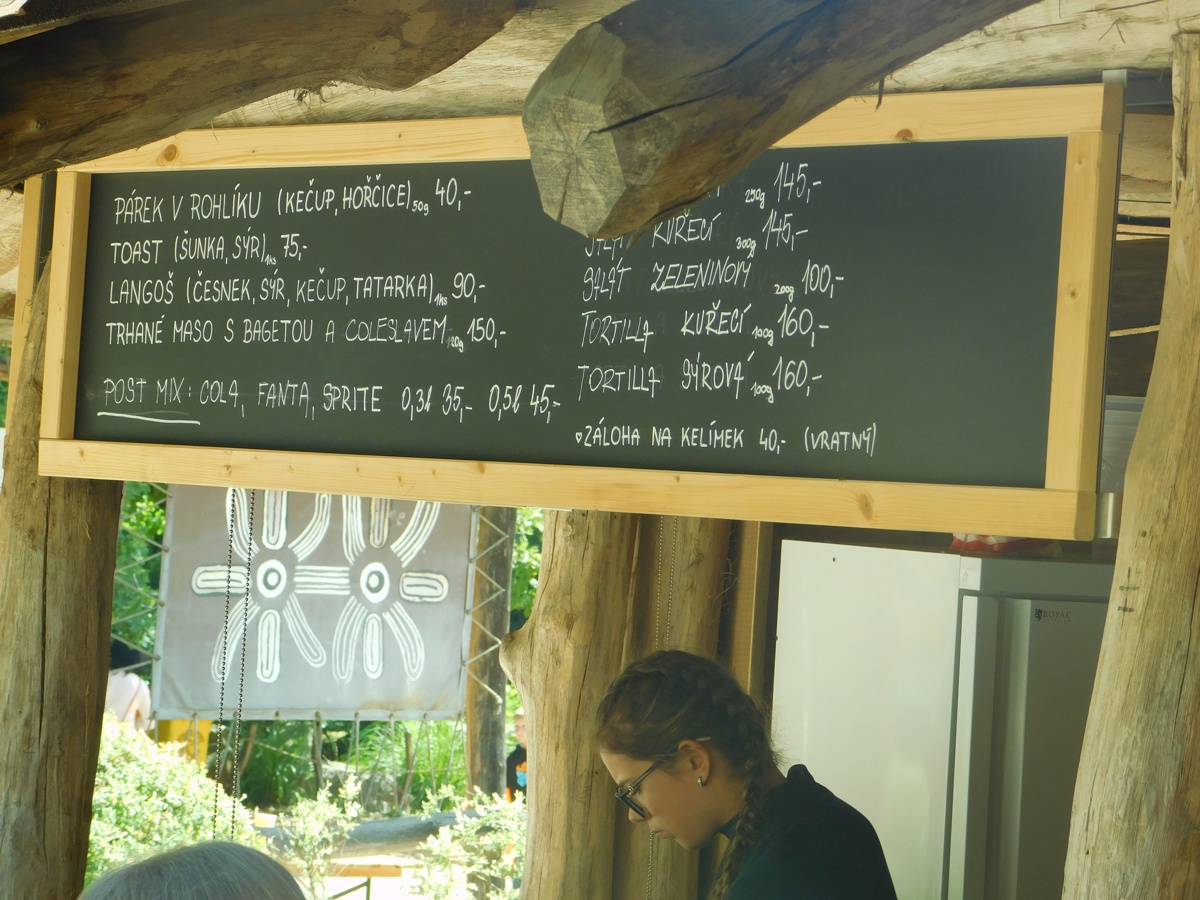 PÁREK V ROHLÍKU (KEČUP, HOŘČICE) 50g 40,-
TOAST (ŠUNKA, SÝR) 1ks 75,-
LANGOŠ (ČESNEK, SÝR, KEČUP, TATARKA) 1ks 90,-
TRHANÉ MASO S BAGETOU A COLESLAVEM 120g 150,-
POST MIX: COLA, FANTA, SPRITE 0,3l 35,- 0,5l 45,-
250g 145,-
KUŘECÍ 300g 145,-
SALÁT ZELENINOVÝ 200g 100,-
TORTILLA KUŘECÍ 100g 160,-
TORTILLA SÝROVÁ 100g 160,-
♥ZÁLOHA NA KELÍMEK 40,- (VRATNÝ)
ROYAL